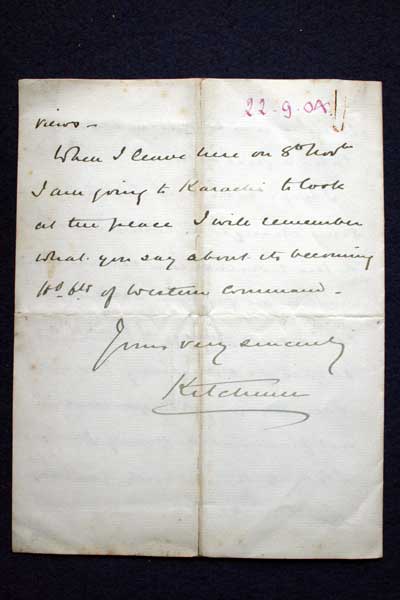 22.9.04
views –
When I leave here on 8th Novbr
I am going to Karachi to look
at the place I will remember
what you say about its becoming
Hd. Qrs of Western Command –
Yours very sincerely
Kitchener